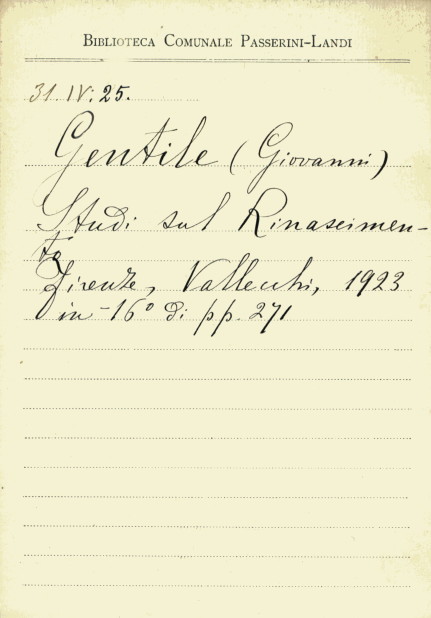 BIBLIOTECA COMUNALE PASSERINI-LANDI
31. IV. 25.
Gentile (Giovanni)
Studi sul Rinascimen-
to
Firenze, Vallecchi, 1923
in-16° di pp. 271